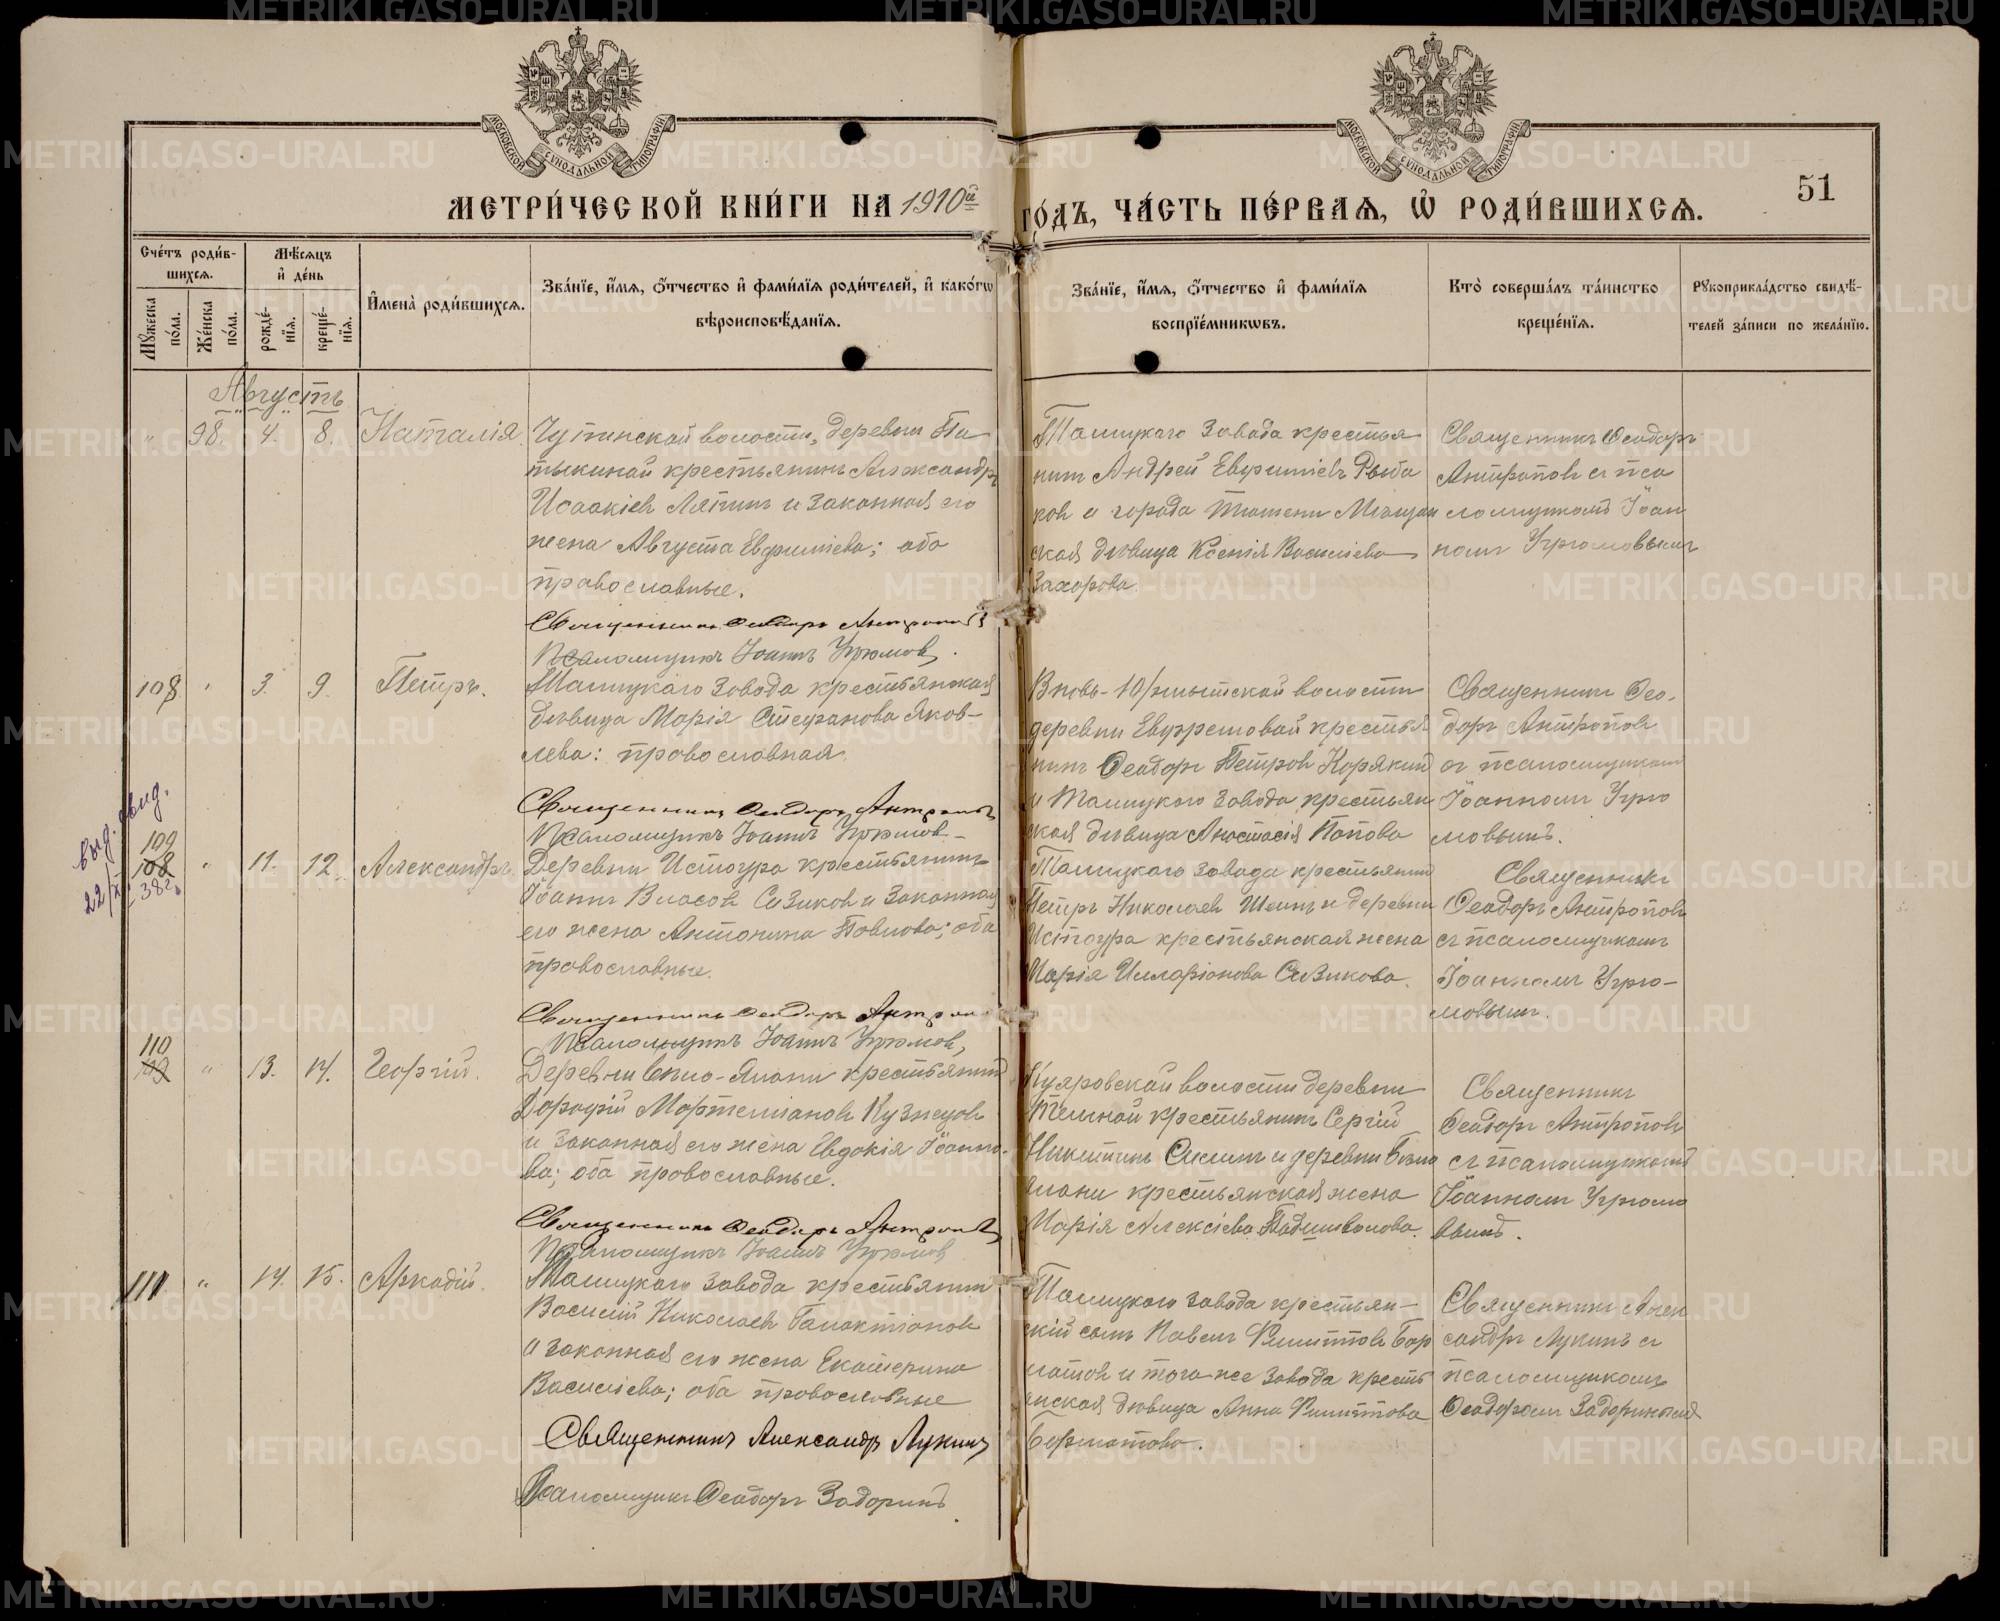 МОСКОВСКОЙ СѴНОДАЛЬНОЙ ТИПОГРАФІИ
МОСКОВСКОЙ СѴНОДАЛЬНОЙ ТИПОГРАФІИ
51
МЕТРИ́ЧЕСКОЙ КНИ́ГИ НА 1910й ГО́ДЪ, ЧА́СТЬ ПЕ́РВАЯ, Ѡ РОДИ́ВШИХСЯ.
Сче́тъ роди́в-
шихся.
Мꙋжеска по́ла.
Же́нска по́ла.
Мѣ́сяцъ
и҆ де́нь
рожде́-
нїя.
креще́-
нїя.
И҆мена̀ роди́вшихся.
Зва́нїе, и҆́мя, ѻ҆́тчество и҆ фами́лїя роди́телей, и҆ како́гѡ
вѣроисповѣ́данїя.
Зва́нїе, и҆́мя, ѻ҆́тчество и҆ фами́лїя
воспрїе́мникѡвъ.
Кто̀ соверша́лъ та́инство
креще́нїя.
Рꙋкоприкла́дство свидѣ́-
телей за́писи по жела́нїю.
Августъ
" 98. 4. 8. Наталія.
деревни Па
тыкиной крестьянинъ Александръ
Исаакіев Ляпин и законная его
жена Августа Евфиміева; оба
православные.
Священникъ Ѳеодоръ Антропов
Псаломщикъ Іоаннъ Угрюмов.
Талицкаго завода крестья
нин Андрей Евфиміев Рыба
ков и города Тюмени Мещан
ская дѣвица Ксенія Василіева
Захарова.
Священникъ Ѳеодоръ
Антропов съ пса
ломщикомъ Іоан
номъ Угрюмовымъ
108 " 3. 9. Петръ.
Талицкаго завода крестьянская
дѣвица Марія Стефанова Яков-
лева: православная
Священникъ Ѳеодоръ Антропов
Псаломщикъ Іоаннъ Угрюмов
Вновь-Юрмытской волости
деревни Евфремовой крестья
нинъ Ѳеодоръ Петров Корякин
и Талицкаго завода крестьян
ская дѣвица Анастасія Попова
Священник Ѳео-
доръ Антропов
съ псаломщикомъ
Іоанномъ Угрю
мовымъ.
выд. свид.
22/X 38г.
109
108 " 11. 12. Александръ.
Деревни Истоура крестьянинъ
Іоаннъ Власов Сизиков и законная
его жена Антонина Павлова; оба
православные.
Священникъ Ѳеодоръ Антропов
Псаломщикъ Іоаннъ Угрюмов,
Талицкаго завода крестьянин
Петръ Николаев Шеин и деревни
Истоура крестьянская жена
Марія Илларіонова Сизикова.
Священникъ
Ѳеодоръ Антропов
съ псаломщикомъ
Іоанномъ Угрю-
мовымъ.
110
109 " 13. 14. Георгій.
крестьянин
Дорофій Мартеміанов Кузнецов
и законная его жена Евдокія Іоанно-
ва; оба православные.
Священникъ Ѳеодоръ Антропов
Псаломщикъ Іоаннъ Угрюмов
Куяровской волости деревни
Темной крестьянинъ Сергій
Никитинъ и деревни
елани крестьянская жена
Марія Алексіева
Священникъ
Ѳеодоръ Антропов
съ псаломщикомъ
Іоанномъ Угрюмо
вымъ.
111 " 14. 15. Аркадій.
Талицкаго завода крестьянин
Василій Николаев Галактіонов
и законная его жена Екатерина
Василіева; оба православные
Священникъ Александръ Лукинъ
Псаломщикъ Ѳеодоръ Задоринъ
Талицкаго завода крестьян-
скій сынъ Павелъ Филиппов Бор
матов и того же завода кресть
янская дѣвица Анна Филиппова
Борматова.
Священникъ Алек
сандръ Лукинъ съ
псаломщикомъ
Ѳеодоромъ Задоринымъ
METRIKI.GASO-URAL.RU